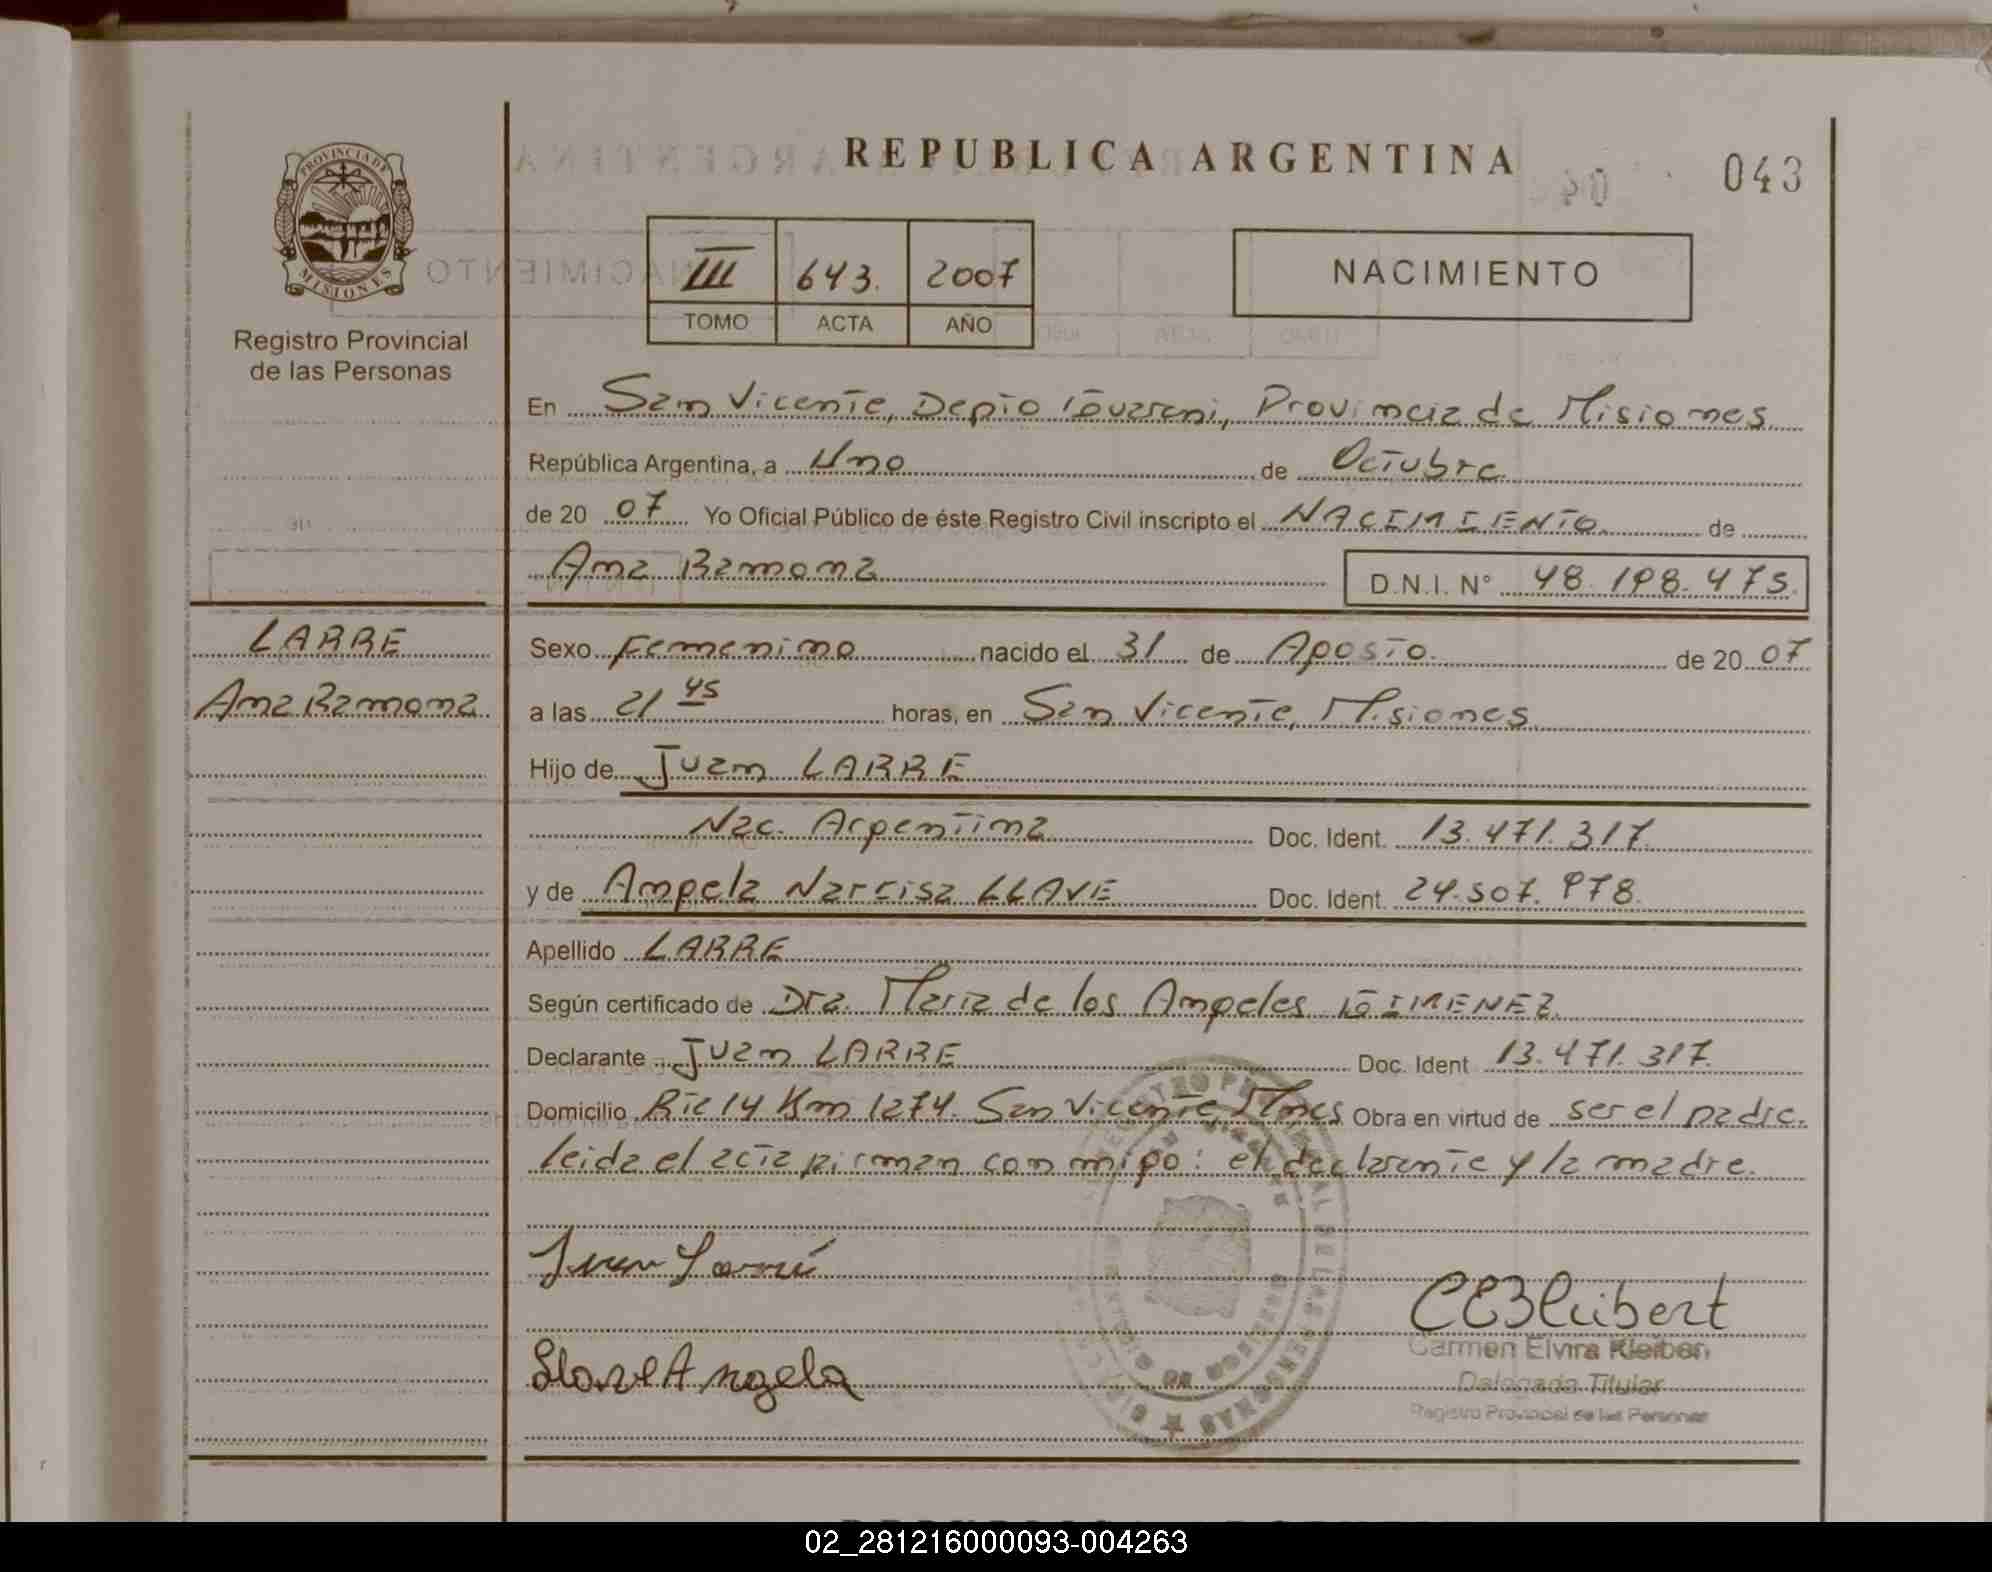 REPUBLICA ARGENTINA
043
PROVINCIA DE
MISIONES
Registro Provincial
de las Personas
III 643. 2007
TOMO ACTA AÑO
NACIMIENTO
En San Vicente, Depto Guarani, Provincia de Misiones
República Argentina, a Uno de Octubre
de 20 07 Yo Oficial Público de éste Registro Civil inscripto el NACIMIENTO de
Ana Ramona D.N.I. N° 48.198.475.
LARRE
Ana Ramona
Sexo Femenino nacido el 31 de Agosto de 20 07
a las 21 45 horas, en San Vicente, Misiones
Hijo de Juan LARRE
Nac. Argentina Doc. Ident. 13.471.317.
y de Angela Narcisa LLAVE Doc. Ident. 24.507.978.
Apellido LARRE
Según certificado de Dra. Maria de los Angeles GIMENEZ
Declarante Juan LARRE Doc. Ident 13.471.317.
Domicilio Rta 14 Km 1274. San Vicente, Mnes Obra en virtud de ser el padre.
leida el acta firman conmigo: el declarante y la madre.
Juan
Angela
Carmen Elvira
Delegada Titular
Registro Provincial de las Personas
02_281216000093-004263